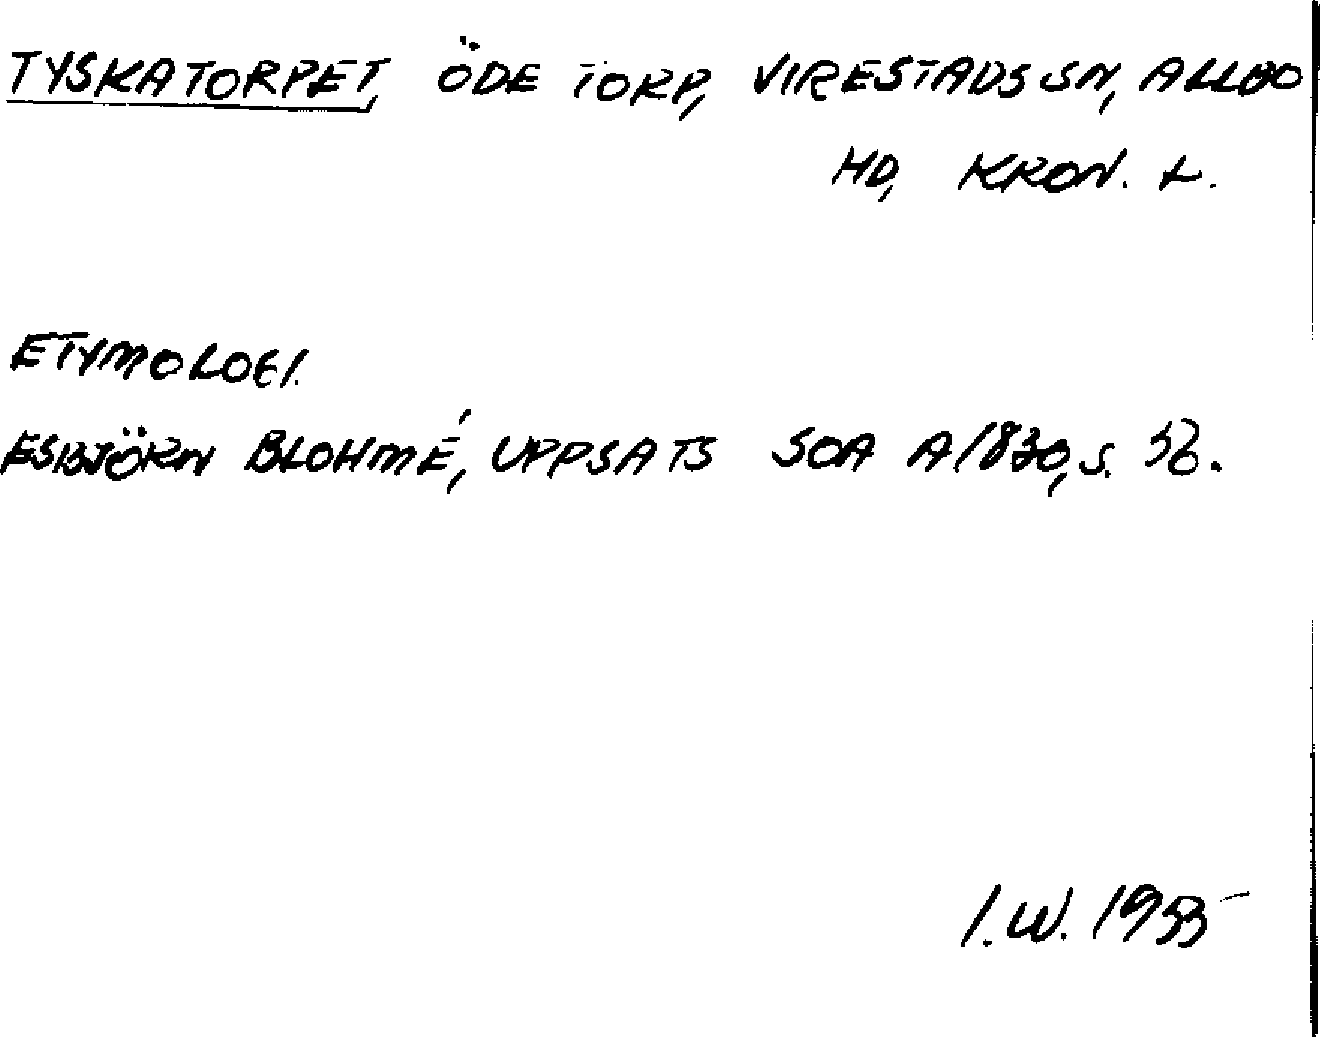 TYSKATORPET, ÖDE TORP, VIRESTADS SN, ALLBO
HD, KRON. L.
ETYMOLOGI.
ESBJÖRN BLOHMÉ, UPPSATS SOA A/830, S.
I.W.